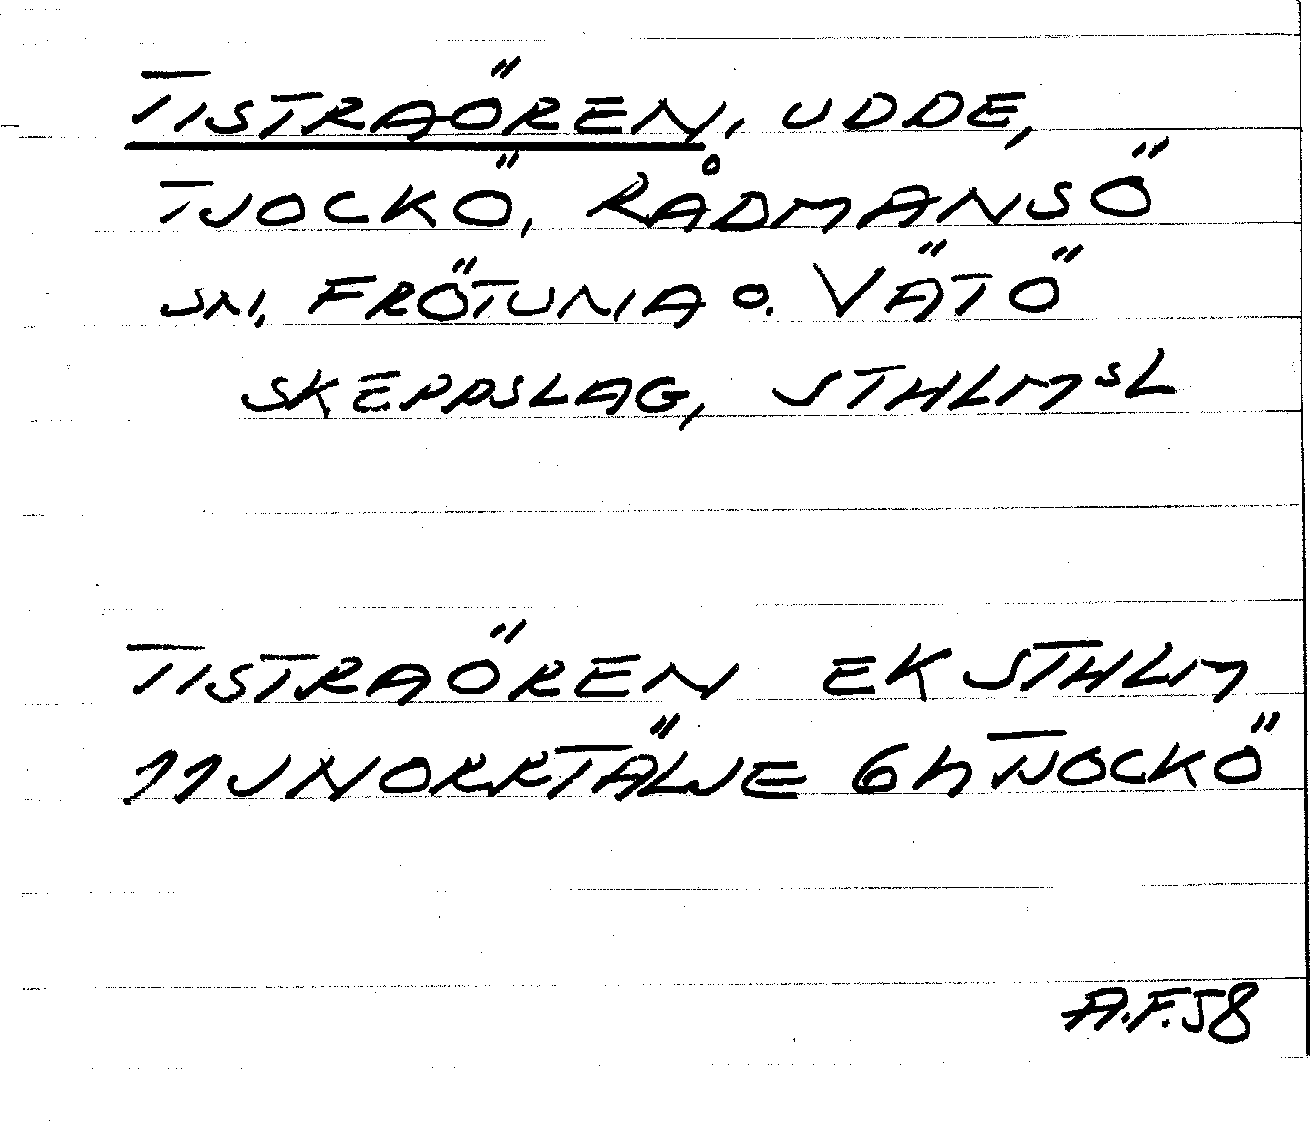 TISTRAÖREN, UDDE,
TJOCKÖ, RÅDMANSÖ
SN, FRÖTUNA O. VÄTÖ
SKEPPSLAG, STHLMSL
TISTRAÖREN EK STHLM
11J NORRTÄLJE 6h TJOCKÖ
A.F.58